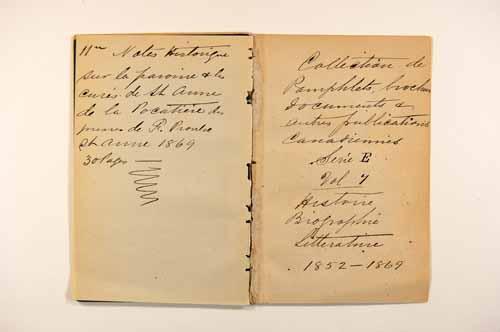 11me Notes Historique
sur la paroisse & les
curés de St Anne
de la Pocatière des
presses de F. Proulx
St Anne 1869
30 Pages
Collection de
Pamphlets, brochures
documents &
autres publications
Canadiennes
Serie E
Vol 7
Histoire
Biographie
Litterature
1852 — 1869